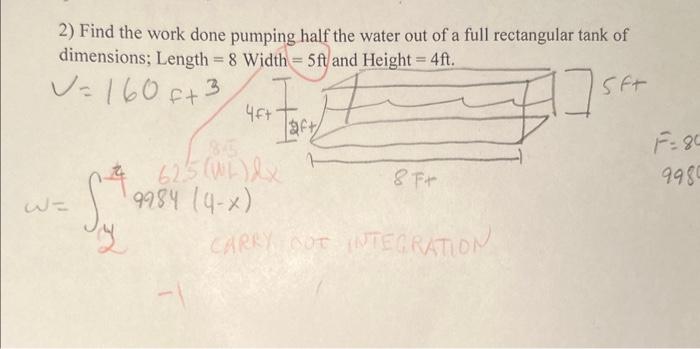 2) Find the work done pumping half the water out of a full rectangular tank of
dimensions; Length = 8 Width = 5ft and Height = 4ft.
V = 160 ft3
5ft
4ft
2ft
F = 80
8.5
62.5 (WL) dx
8 Ft
998
4
w = ∫ 9984 (4-x)
2
CARRY OUT INTEGRATION
-1